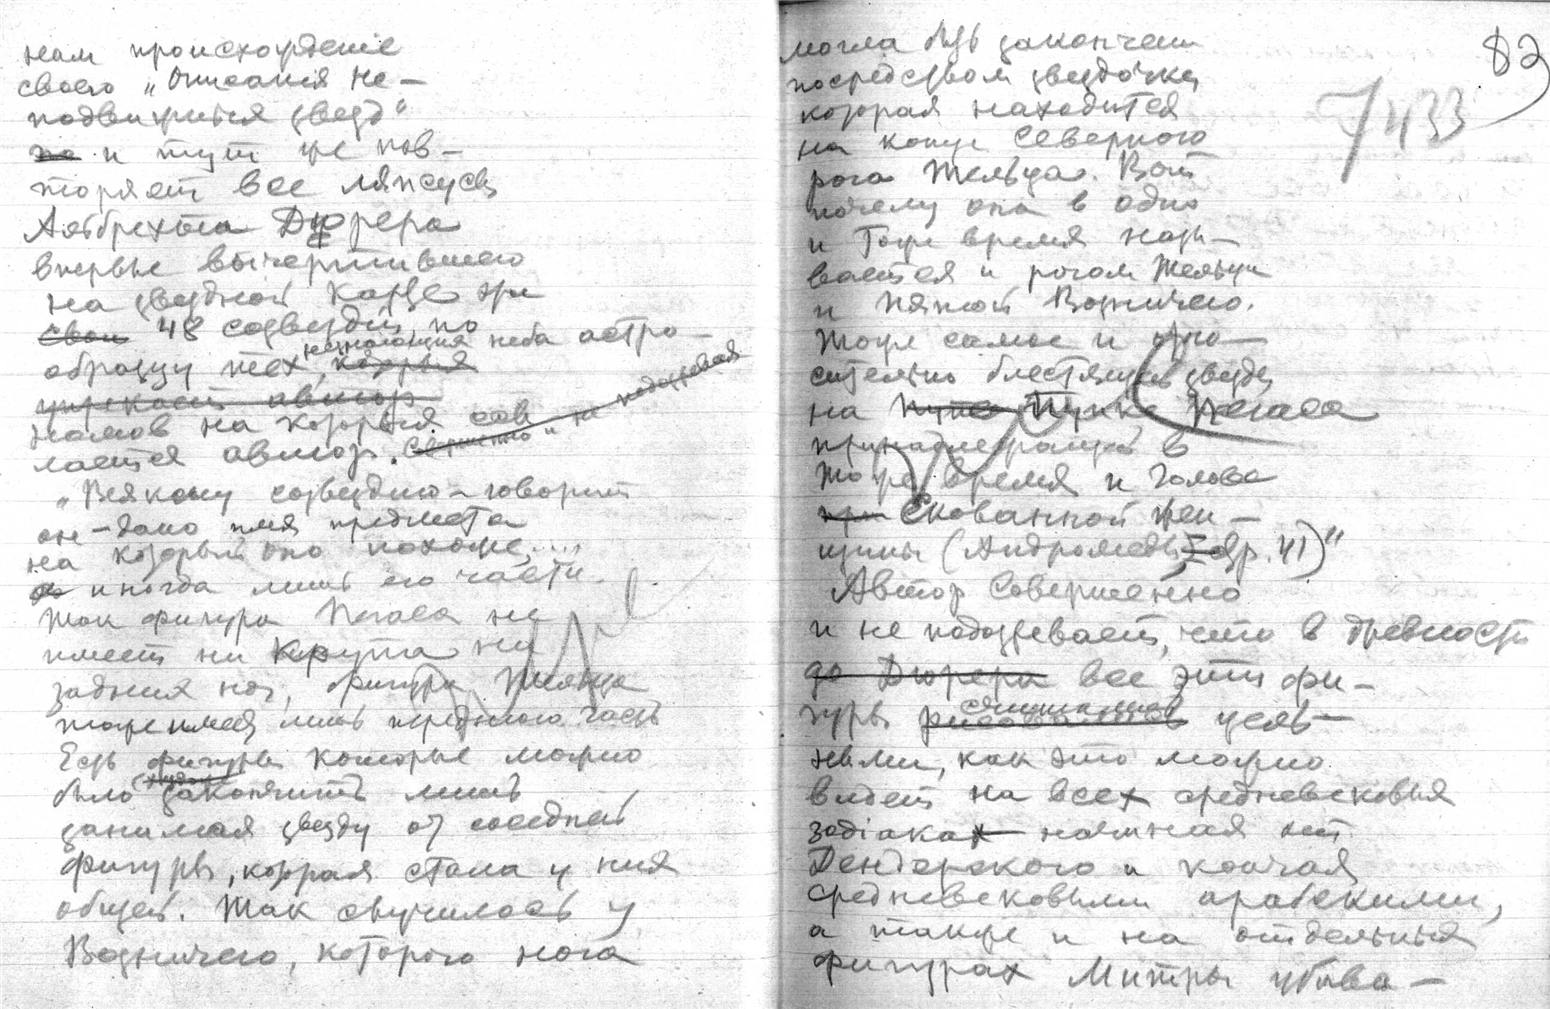 нам происхождение
своего „Описания не-
подвижныя звезд“
но и тут же пов-
торяет все ляпсусы
Альбрехта Дюрера
впервые вычертившего
на звездной карте эти
свои 48 созвездий, по
образцу тех, незнающих неба астро-
номов на которыя ссы
лается автор. совершенно и не подозревая
„Всякому созвездию – говорит
он – дано имя предмета
на который оно похоже,....
а иногда лишь его части.
Так фигура Пегаса не
имеет ни крупа ни
задния ног, фигура Тельца
тоже имея лишь переднюю часть
Есть фигуры которые можно
было закончить лишь
занимая звезду от соседней
фигуры, которая стала у них
общей. Так случилось у
Возничего, которого нога
82
7433
могла быть закончена
посредством звездочки
которая находится
на конце северного
рога Тельца. Вот
почему она в одно
и тоже время назы-
вается и рогом Тельца
и пятой Возничего.
Тоже самое и отно-
сительно блестящей звезды
на пупке Пегаса
принадлежащей в
тоже время и голове
при скованной жен-
щины (Андромеды, стр. 41)“
Автор совершенно
и не подозревает, что в древности
до Дюрера все эти фи-
гуры рисовались цель-
ными, как это можно
видеть на всех средневековыя
зодіаках начиная от
Дендерского и кончая
средневековыми арабскими,
а также и на отдельныя
фигурах Митры убива-